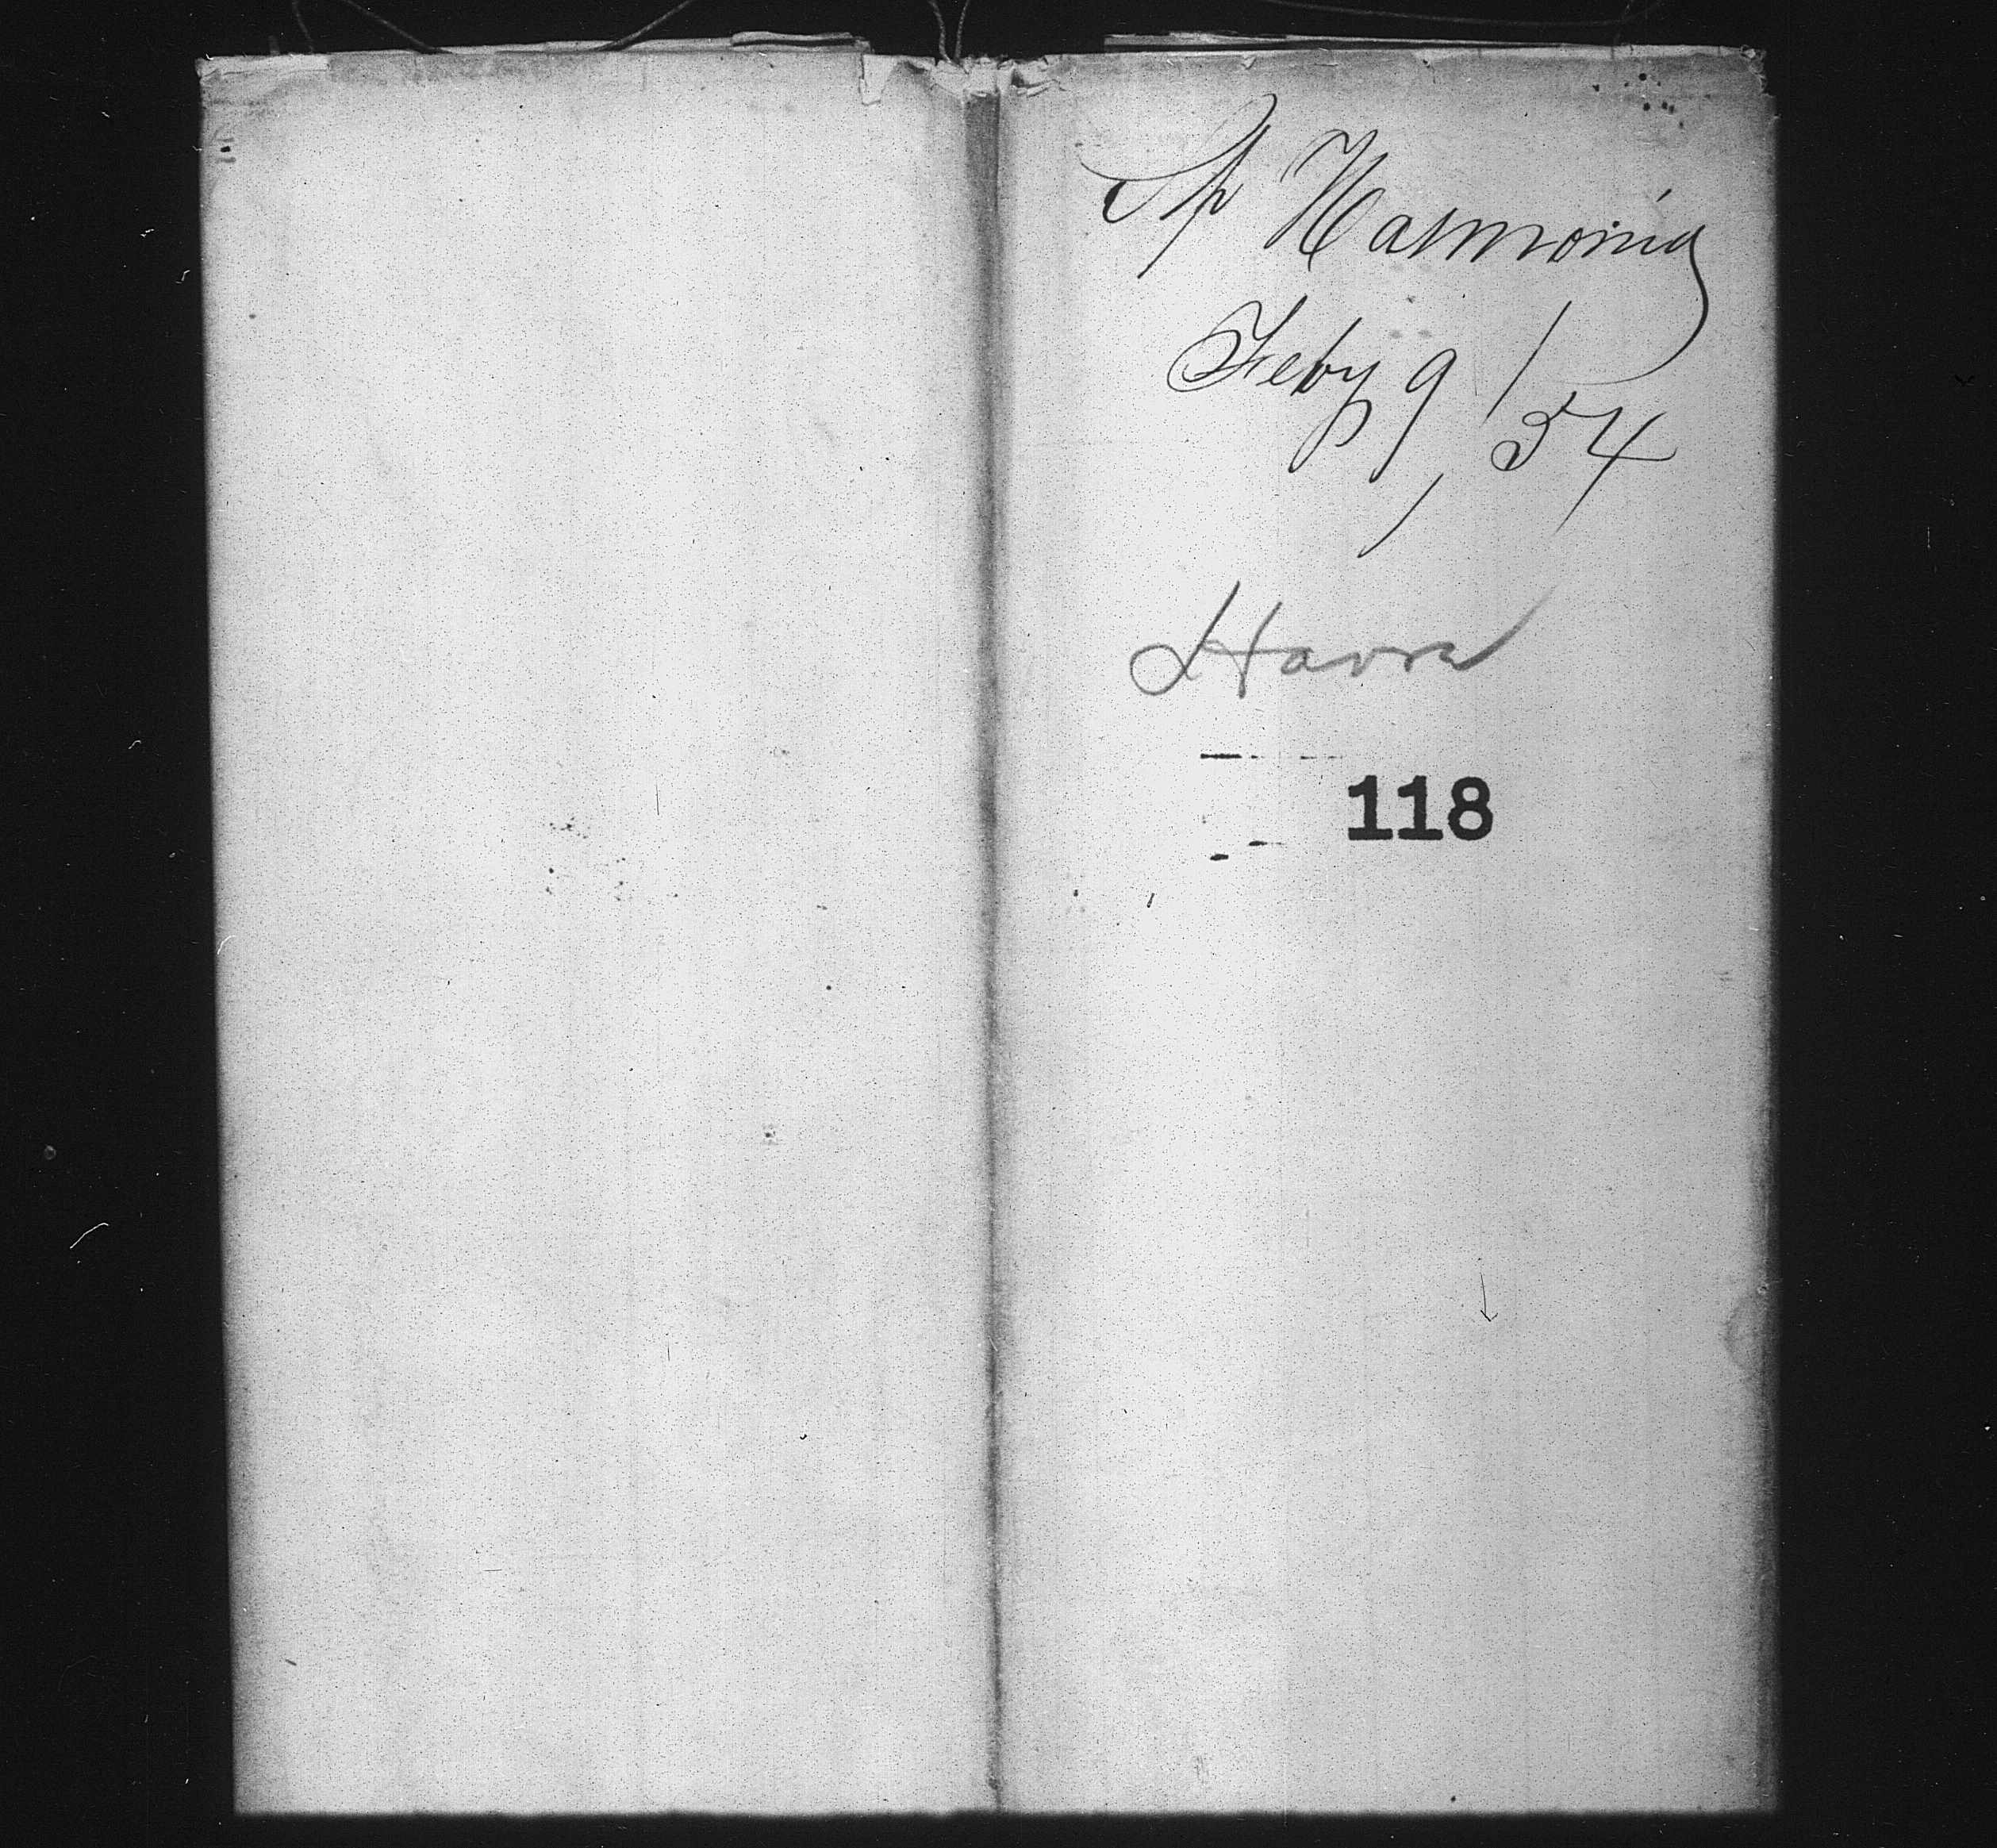 Sp Harmonia
Feby 9/54
Havre
118